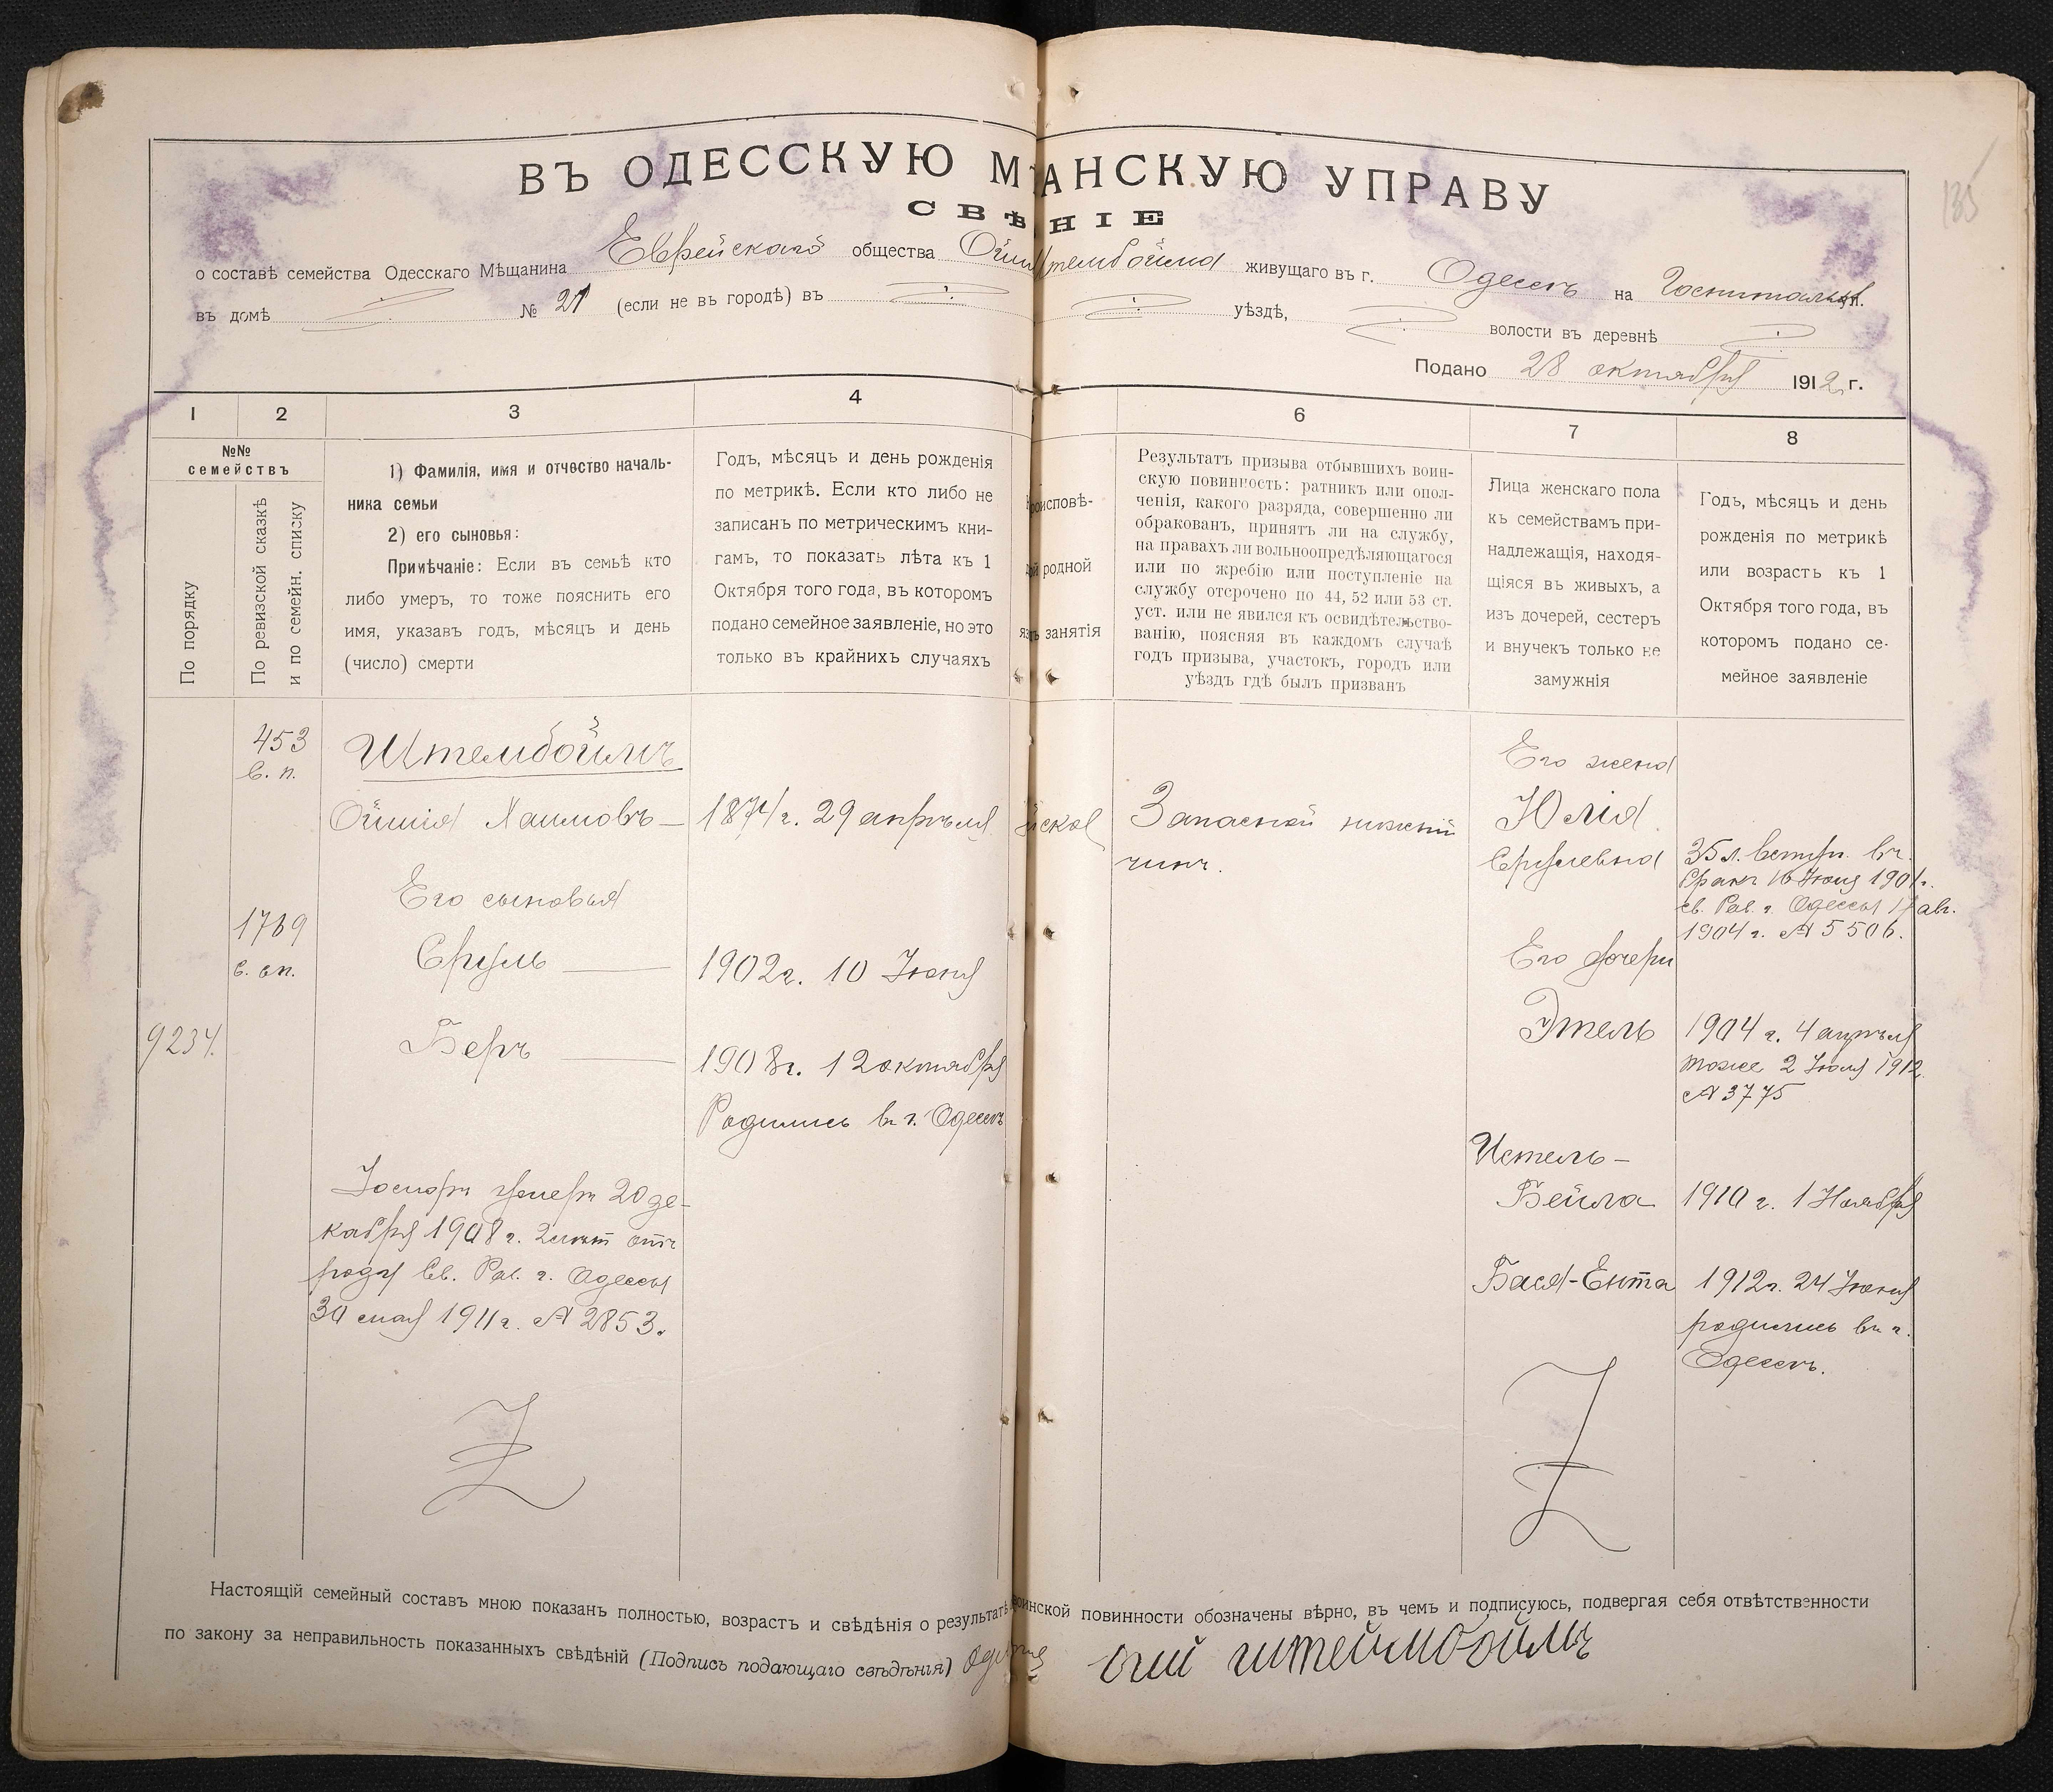 135
ВЪ ОДЕССКУЮ М АНСКУЮ УПРАВУ
СВѢ НІЕ
о составѣ семейства Одесскаго Мѣщанина Еврейскаго общества живущаго въ г. Одессѣ на ул.
въ домѣ № 21 (если не въ городѣ) въ уѣздѣ, волости въ деревнѣ
Подано 28 октября 1912 г.
1 2 3 4 6 7 8
№№ семействъ
По порядку
По ревизской сказкѣ
и по семейн. списку
1) Фамилія, имя и отчество началь-
ника семьи
2) его сыновья:
Примѣчаніе: Если въ семьѣ кто
либо умеръ, то тоже пояснить его
имя, указавъ годъ, мѣсяцъ и день
(число) смерти
Годъ, мѣсяцъ и день рожденія
по метрикѣ. Если кто либо не
записанъ по метрическимъ кни-
гамъ, то показать лѣта къ 1
Октября того года, въ котором
подано семейное заявленіе, но это
только въ крайнихъ случаяхъ
роисповѣ-
родной
занятія
Результатъ призыва отбывшихъ воин-
скую повинность: ратникъ или опол-
ченія, какого разряда, совершенно ли
обракованъ, принятъ ли на службу,
на правахъ ли вольноопредѣляющагося
или по жребію или поступленіе на
службу отсрочено по 44, 52 или 53 ст.
уст. или не явился къ освидѣтельство-
ванію, поясняя въ каждомъ случаѣ
годъ призыва, участокъ, городъ или
уѣздъ гдѣ былъ призванъ
Лица женскаго пола
къ семействамъ при-
надлежащія, находя-
щіяся въ живыхъ, а
изъ дочерей, сестеръ
и внучекъ только не
замужнія
Годъ, мѣсяцъ и день
рожденія по метрикѣ
или возрастъ къ 1
Октября того года, въ
которомъ подано се-
мейное заявленіе
453
в. п.
Штембоймъ
Ойшія Хаимовъ — 1874 г. 29 апрѣля
йской
Запасной нижній
чинъ.
Его жена
Юлія
Срулевна
35 л. вступ. въ
бракъ 16 Іюня 1901 г.
св. Рав. г. Одессы 17 авг.
1904 г. № 5506.
Его сыновья
1769
с. сп.
Сруль — 1902 г. 10 Іюня
9234.
Беръ — 1908 г. 12 октября
Родились въ г. Одессѣ
Его дочери
Этель 1904 г. 4 апрѣля
тоже 2 Іюля 1912
№ 3775
декабря 1908 г. 2 лѣтъ отъ
роду Св. Рав. г. Одессы
30 мая 1911 г. № 2853.
Бейла 1910 г. 1 Ноября
Бася-Ента 1912 г. 24 Іюня
родились въ г.
Одессѣ.
Настоящій семейный составъ мною показанъ полностью, возрастъ и свѣдѣнія о результатѣ воинской повинности обозначены вѣрно, въ чемъ и подписуюсь, подвергая себя отвѣтственности
по закону за неправильность показанныхъ свѣдѣній (Подпись подающаго свѣдѣнія) штеймбоймъ